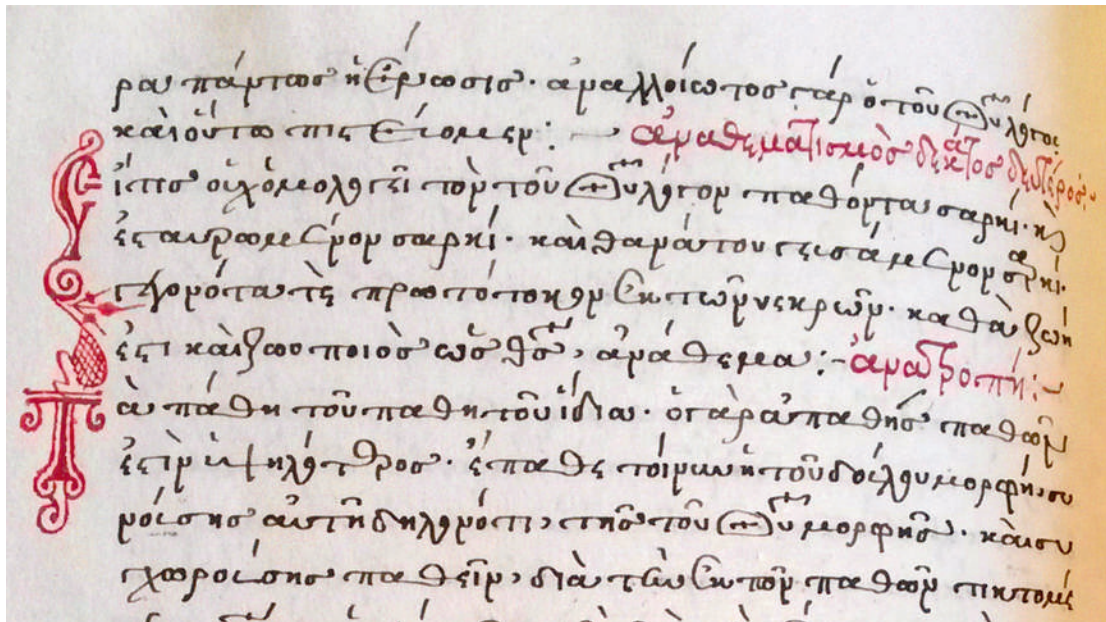 ρα πάντως ἡ ἕνωσις· ἀναλλοίωτος γὰρ ὁ τοῦ θῦ λόγος
καὶ οὕτω πιστεύομεν: — ἀναθεματισμὸς δέκατος δεύτερος·
Εἴ τις οὐχ ὁμολογεῖ τὸν τοῦ θῦ λόγον παθόντα σαρκί· κὶ
ἐσταυρωμένον σαρκί· καὶ θανάτου γευσάμενον σαρκί·
γεγονότα τὲ πρωτότοκον ἐκ τῶν νεκρῶν· καθὰ ζωή
ἐστι καὶ ζωοποιὸς ὡς θς, ἀνάθεμα:- ἀνατροπή:~
Τὰ πάθη τοῦ παθητοῦ ἴδια· ὁ γὰρ ἀπαθὴς παθῶν
ἐστὶν ὑψηλότερος· ἔπαθε τοίνυν ἡ τοῦ δούλου μορφή, συ
νούσης αὐτῇ δηλονότι, τῆς τοῦ θῦ μορφῆς· καὶ συ
γχωρούσης παθεῖν, διὰ τὴν ἐκ τῶν παθῶν τικτομέ